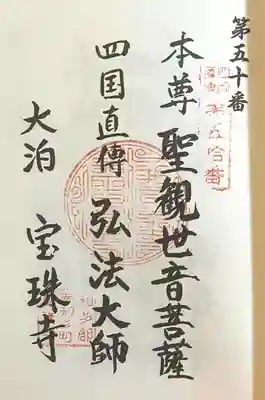 第五十番
本尊 聖観世音菩薩
四国直傳 弘法大師
大泊 宝珠寺